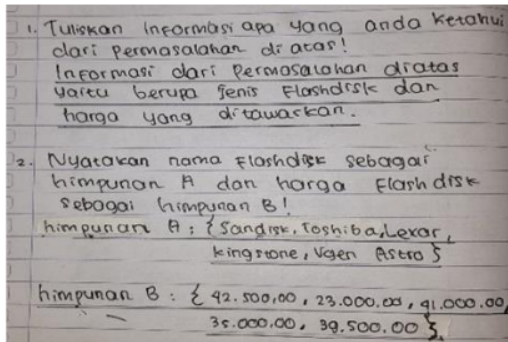 1. Tuliskan informasi apa yang anda ketahui
dari permasalahan di atas!
Informasi dari Permasalahan diatas
yaitu berupa jenis Flashdisk dan
harga yang ditawarkan.
2. Nyatakan nama Flashdisk sebagai
himpunan A dan harga Flash disk
sebagai himpunan B!
himpunan A : {Sandisk, Toshiba, Lexar,
kingstone, Vgen Astro}
himpunan B : { 42.500,00, 23.000.00, 41.000.00,
35.000.00, 39.500.00 }.